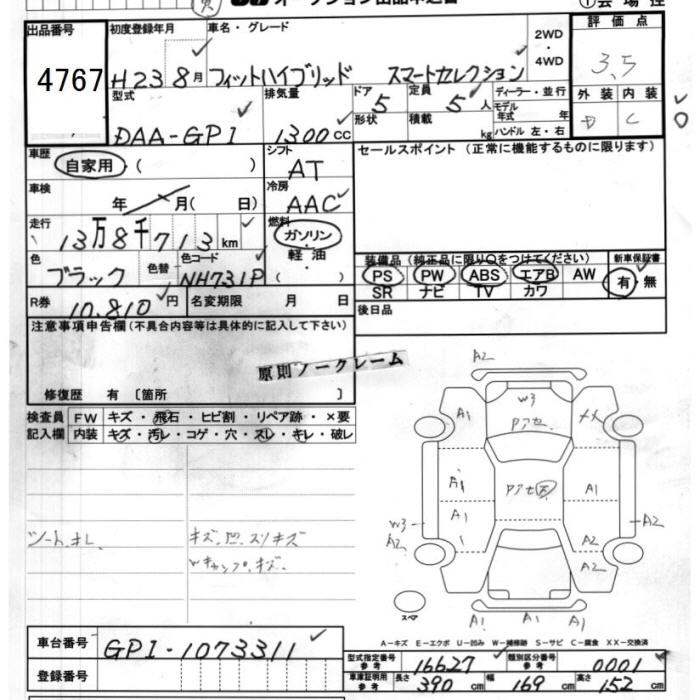 出品番号 4767
初度登録年月 H23 8月
車名・グレード フィットハイブリッド スマートセレクション
2WD・4WD
評価点 3.5
型式 DAA-GP1
排気量 1300cc
ドア 5
形状
定員 5人
積載 kg
ディーラー・並行
モデル年式 年
ハンドル 左・右
外装 D 内装 C
車歴 自家用・( )
シフト AT
セールスポイント (正常に機能するものに限ります)
車検 年 月( 日)
冷房 AAC
走行 13万8千713km
燃料 ガソリン・軽油・( )
色 ブラック 色替 色コード NH731P
装備品 (純正品に限り○をつけてください) 新車保証書
PS PW ABS エアB AW 有・無
SR ナビ TV カワ
R券 10,810円 名変期限 月 日
後日品
注意事項申告欄 (不具合内容等は具体的に記入して下さい)
原則ノークレーム
修復歴 有 〔箇所 〕
検査員記入欄
FW キズ・飛石・ヒビ割・リペア跡・×要
内装 キズ・汚レ・コゲ・穴・スレ・キレ・破レ
シート.キレ
キズ.凹.スリキズ
A2
W3
A1
A1
A1
A1
A2
A2
W3
A2
A2
A1 A1 A1
スペア
A-キズ E-エクボ U-凹み W-補修跡 S-サビ C-腐食 XX-交換済
車台番号 GP1-1073311
登録番号
型式指定番号 参考 16627 類別区分番号 参考 0001
車庫証明用 参考 長さ 390cm 幅 169cm 高さ 152cm